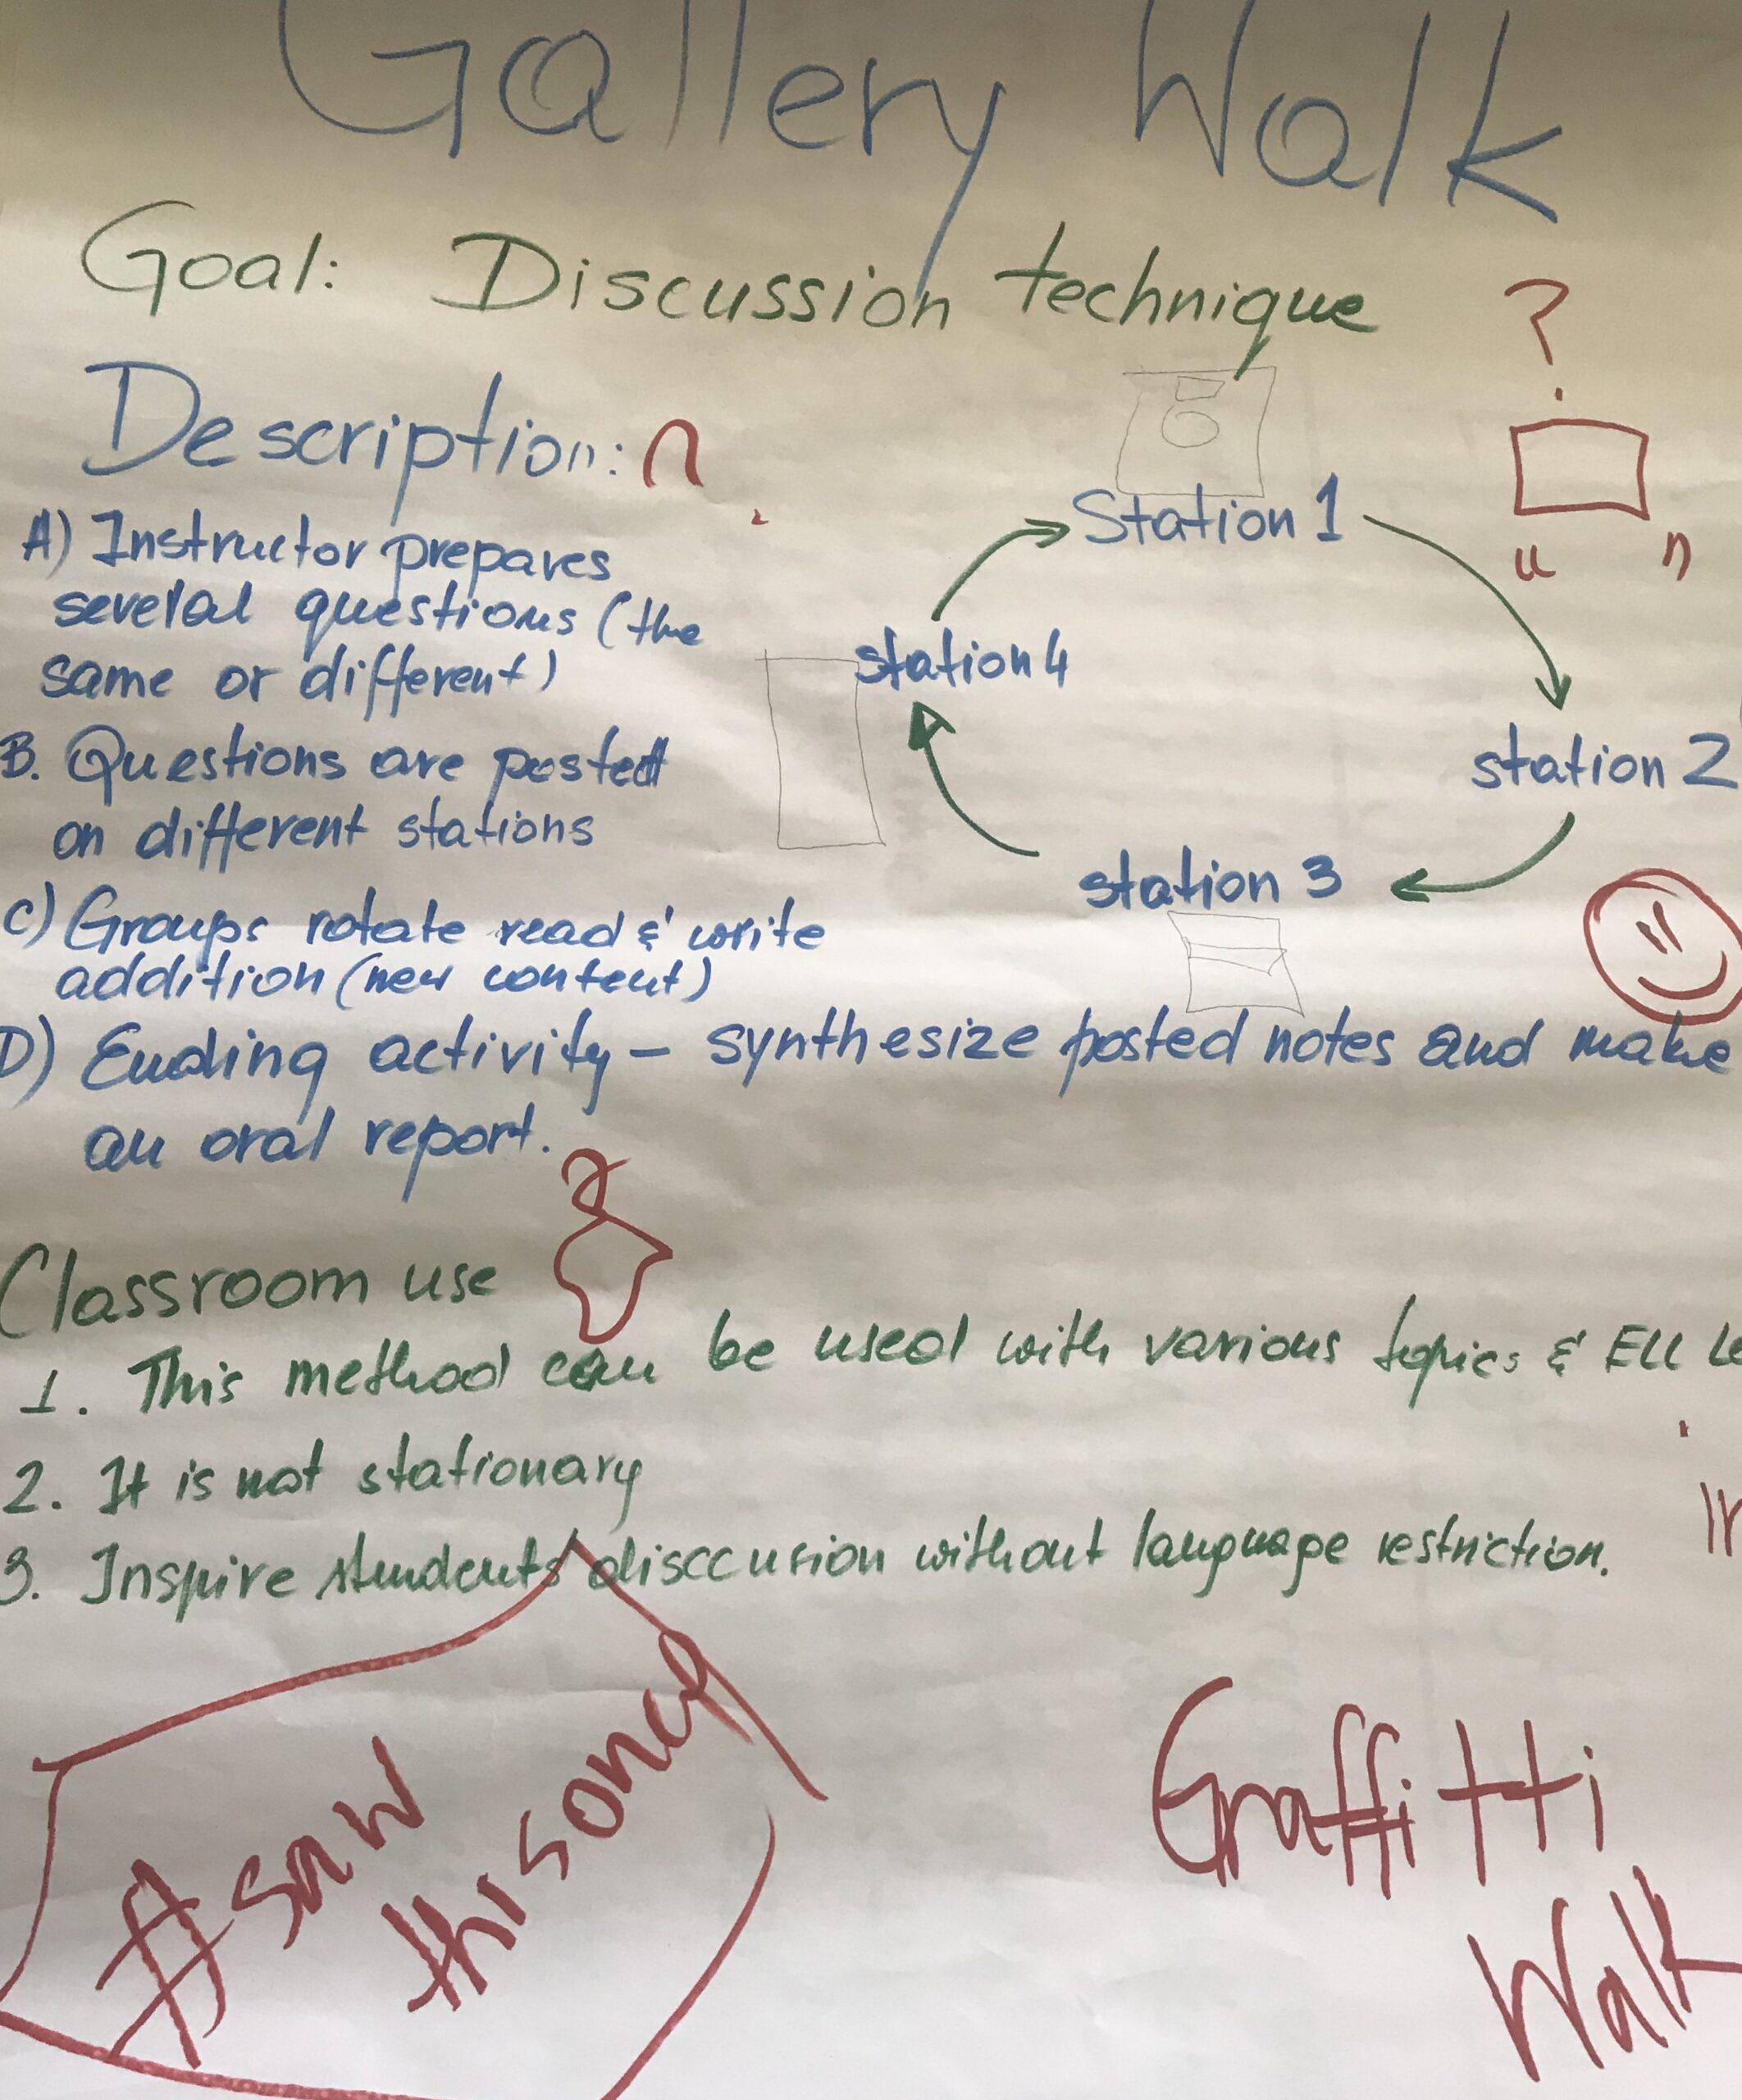 Gallery Walk
Goal: Discussion technique
?
Description:
A) Instructor prepares
several questions (the
same or different)
B. Questions are posted
on different stations
C) Groups rotate read & write
addition (new content)
D) Ending activity - synthesize posted notes and make
an oral report.
Station 1
station 2
station 3
station 4
" "
Classroom use
1. This method can be used with various topics & ELL
2. It is not stationary
3. Inspire students' disccusion without language restriction.
#saw
this once
Graffitti
Walk